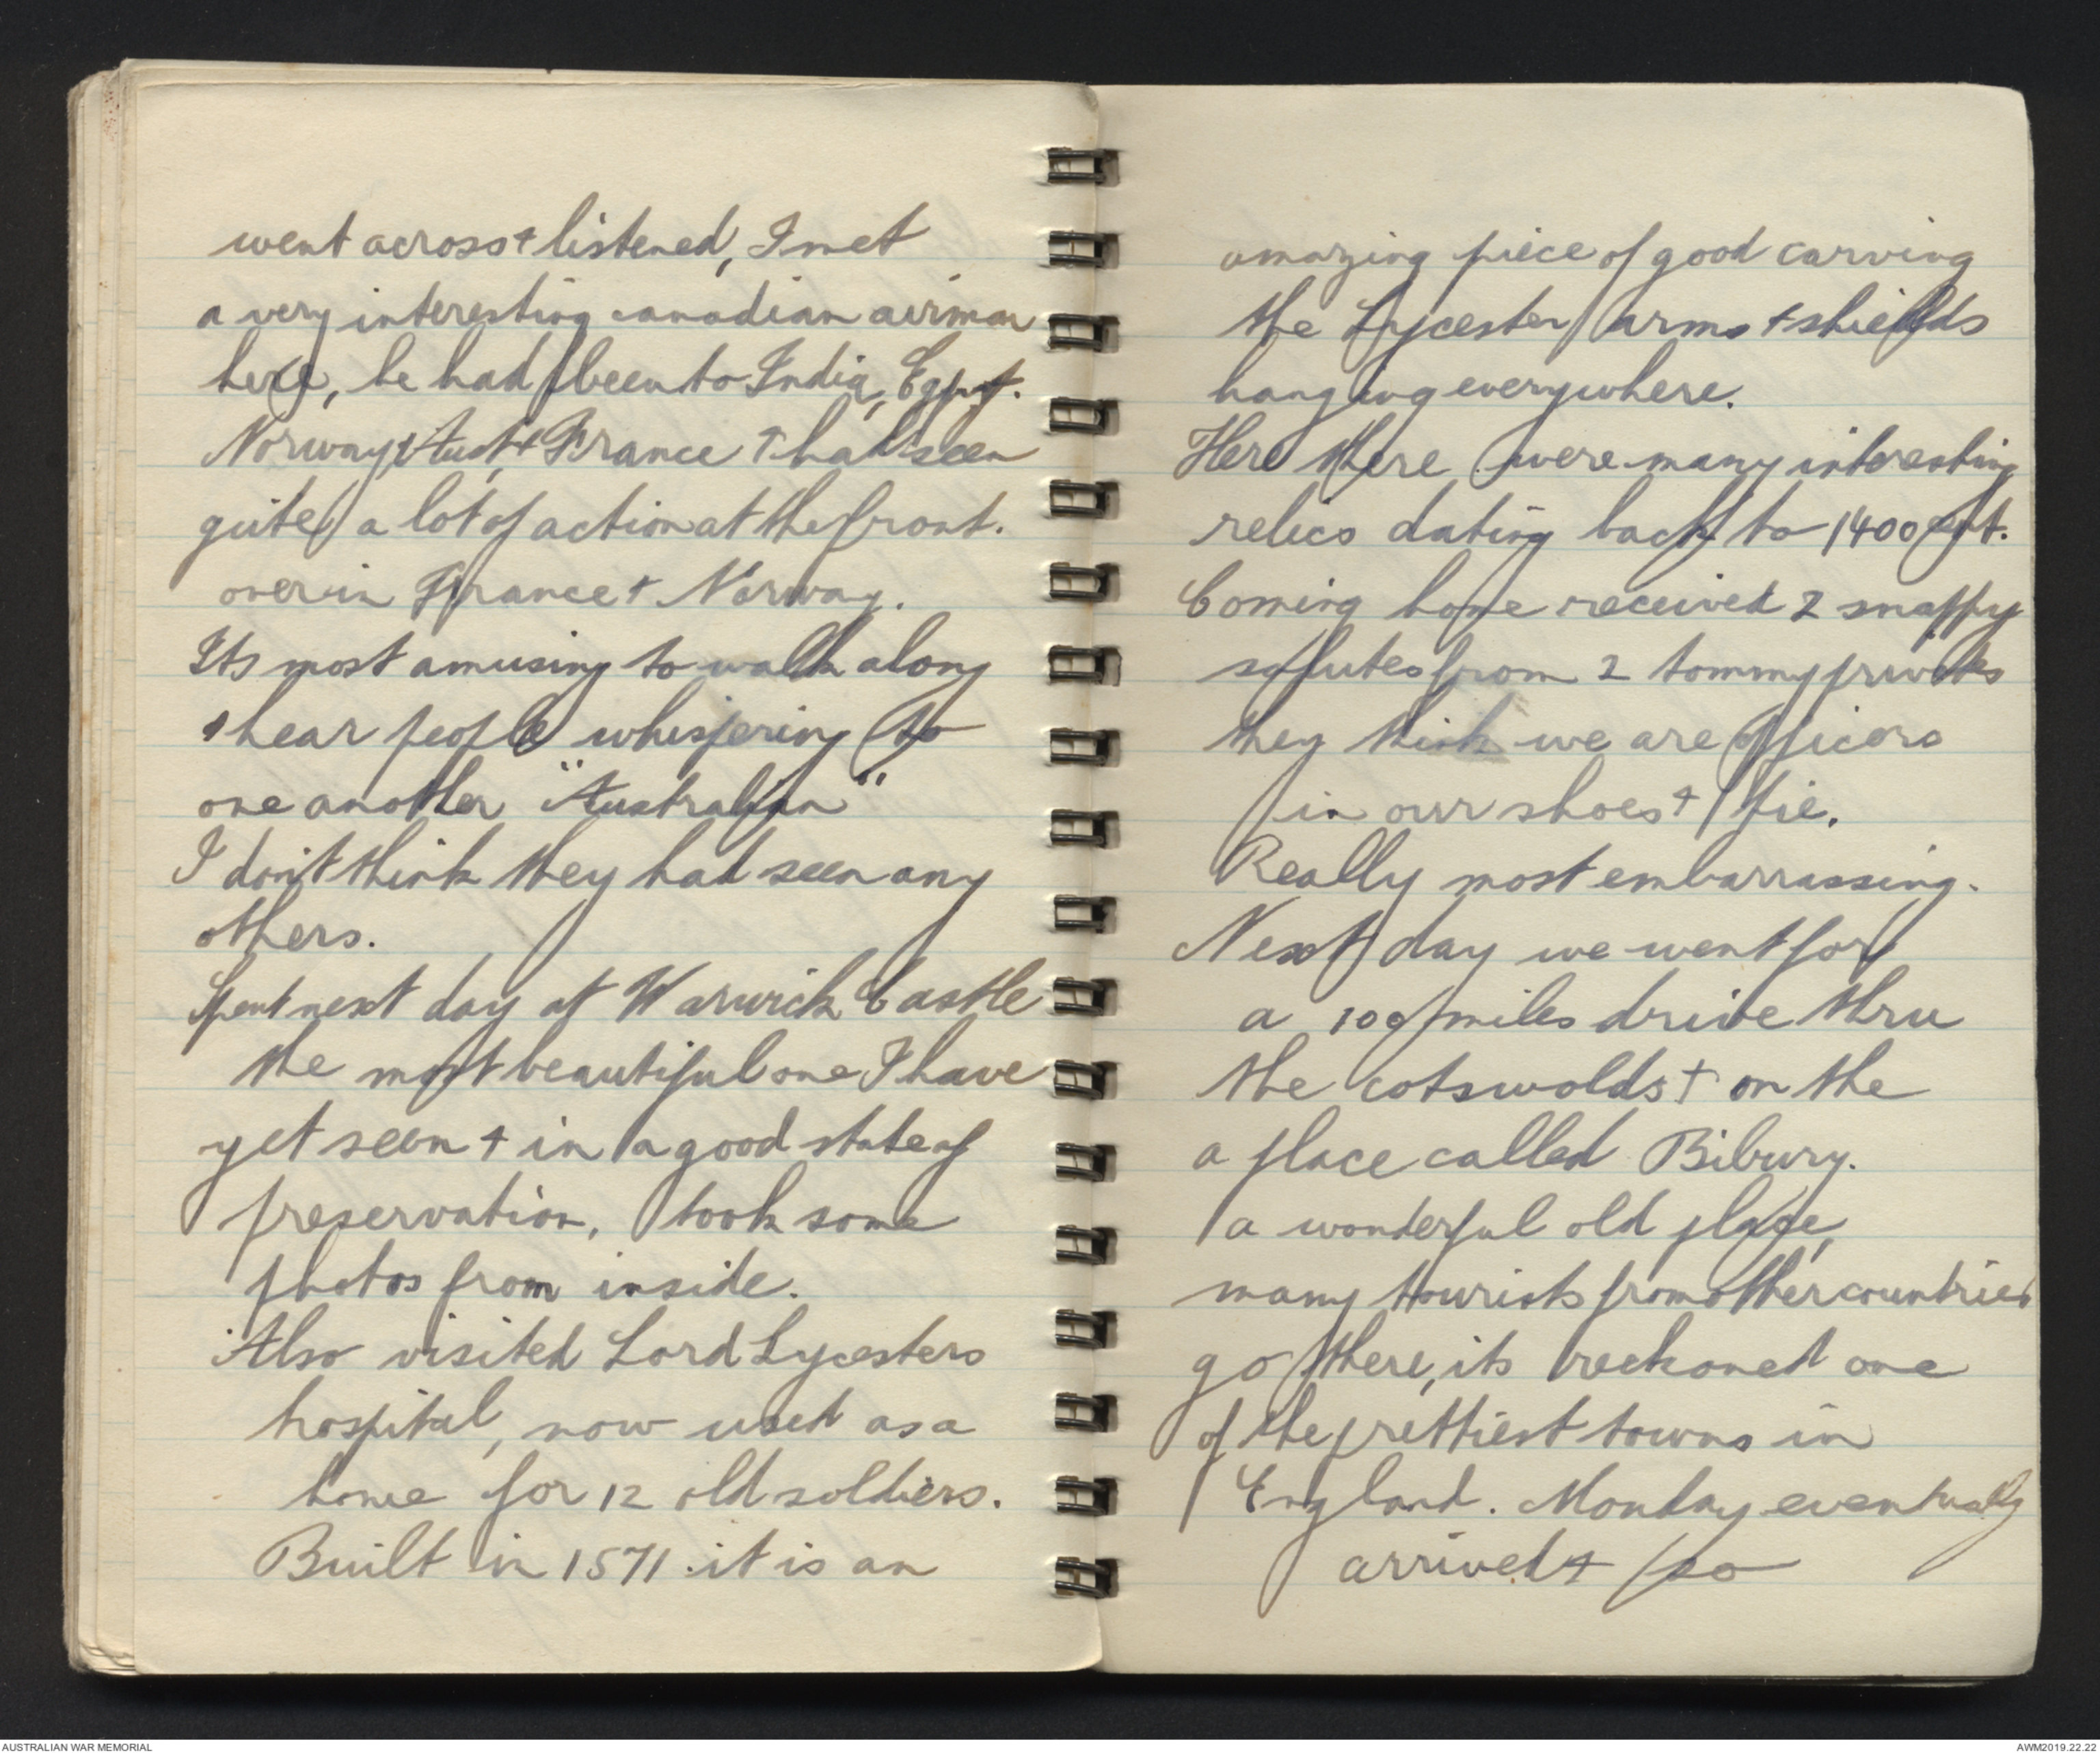 went across & listened, I met
a very interesting canadian airman
here, he had been to India, Egypt.
Norway, Aust, & France & had seen
quite a lot of action at the front.
over in France & Norway.
Its most amusing to walk along
& hear people whispering to
one another "Australian"
I don't think they had seen any
others.
Spent next day at Warwick Castle
the most beautiful one I have
yet seen & in a good state of
preservation, took some
photos from inside.
Also visited Lord Lycesters
hospital, now used as a
home for 12 old soldiers.
Built in 1571 it is an
amazing piece of good carving
the Lycester arms & shields
hanging everywhere.
Here there were many interesting
relics dating back to 1400
Coming home received 2 snappy
salutes from 2 tommy privates
they think we are officers
in our shoes & tie.
Really most embarrassing.
Next day we went for
a 100 miles drive thru
the cotswolds & on the
a place called Bibury.
a wonderful old place,
many tourists from other countries
go there, its reckoned one
of the prettiest towns in
England. Monday eventually
arrived & so
AUSTRALIAN WAR MEMORIAL
AWM2019.22.22